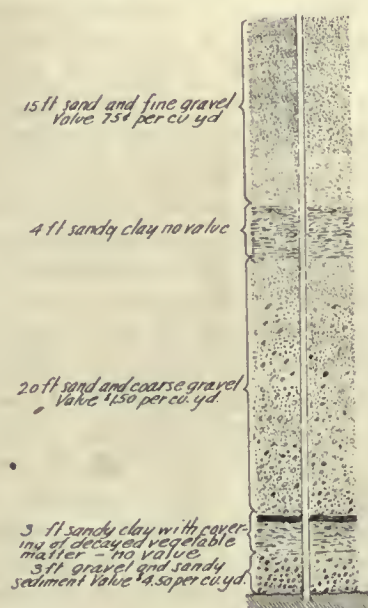 15 ft sand and fine gravel
Value 75¢ per cu. yd
4 ft sandy clay no value
20 ft sand and coarse gravel
Value $1.50 per cu. yd.
3 ft sandy clay with cover-
ing of decayed vegetable
matter – no value
3 ft gravel and sandy
sediment Value $4.50 per cu. yd.